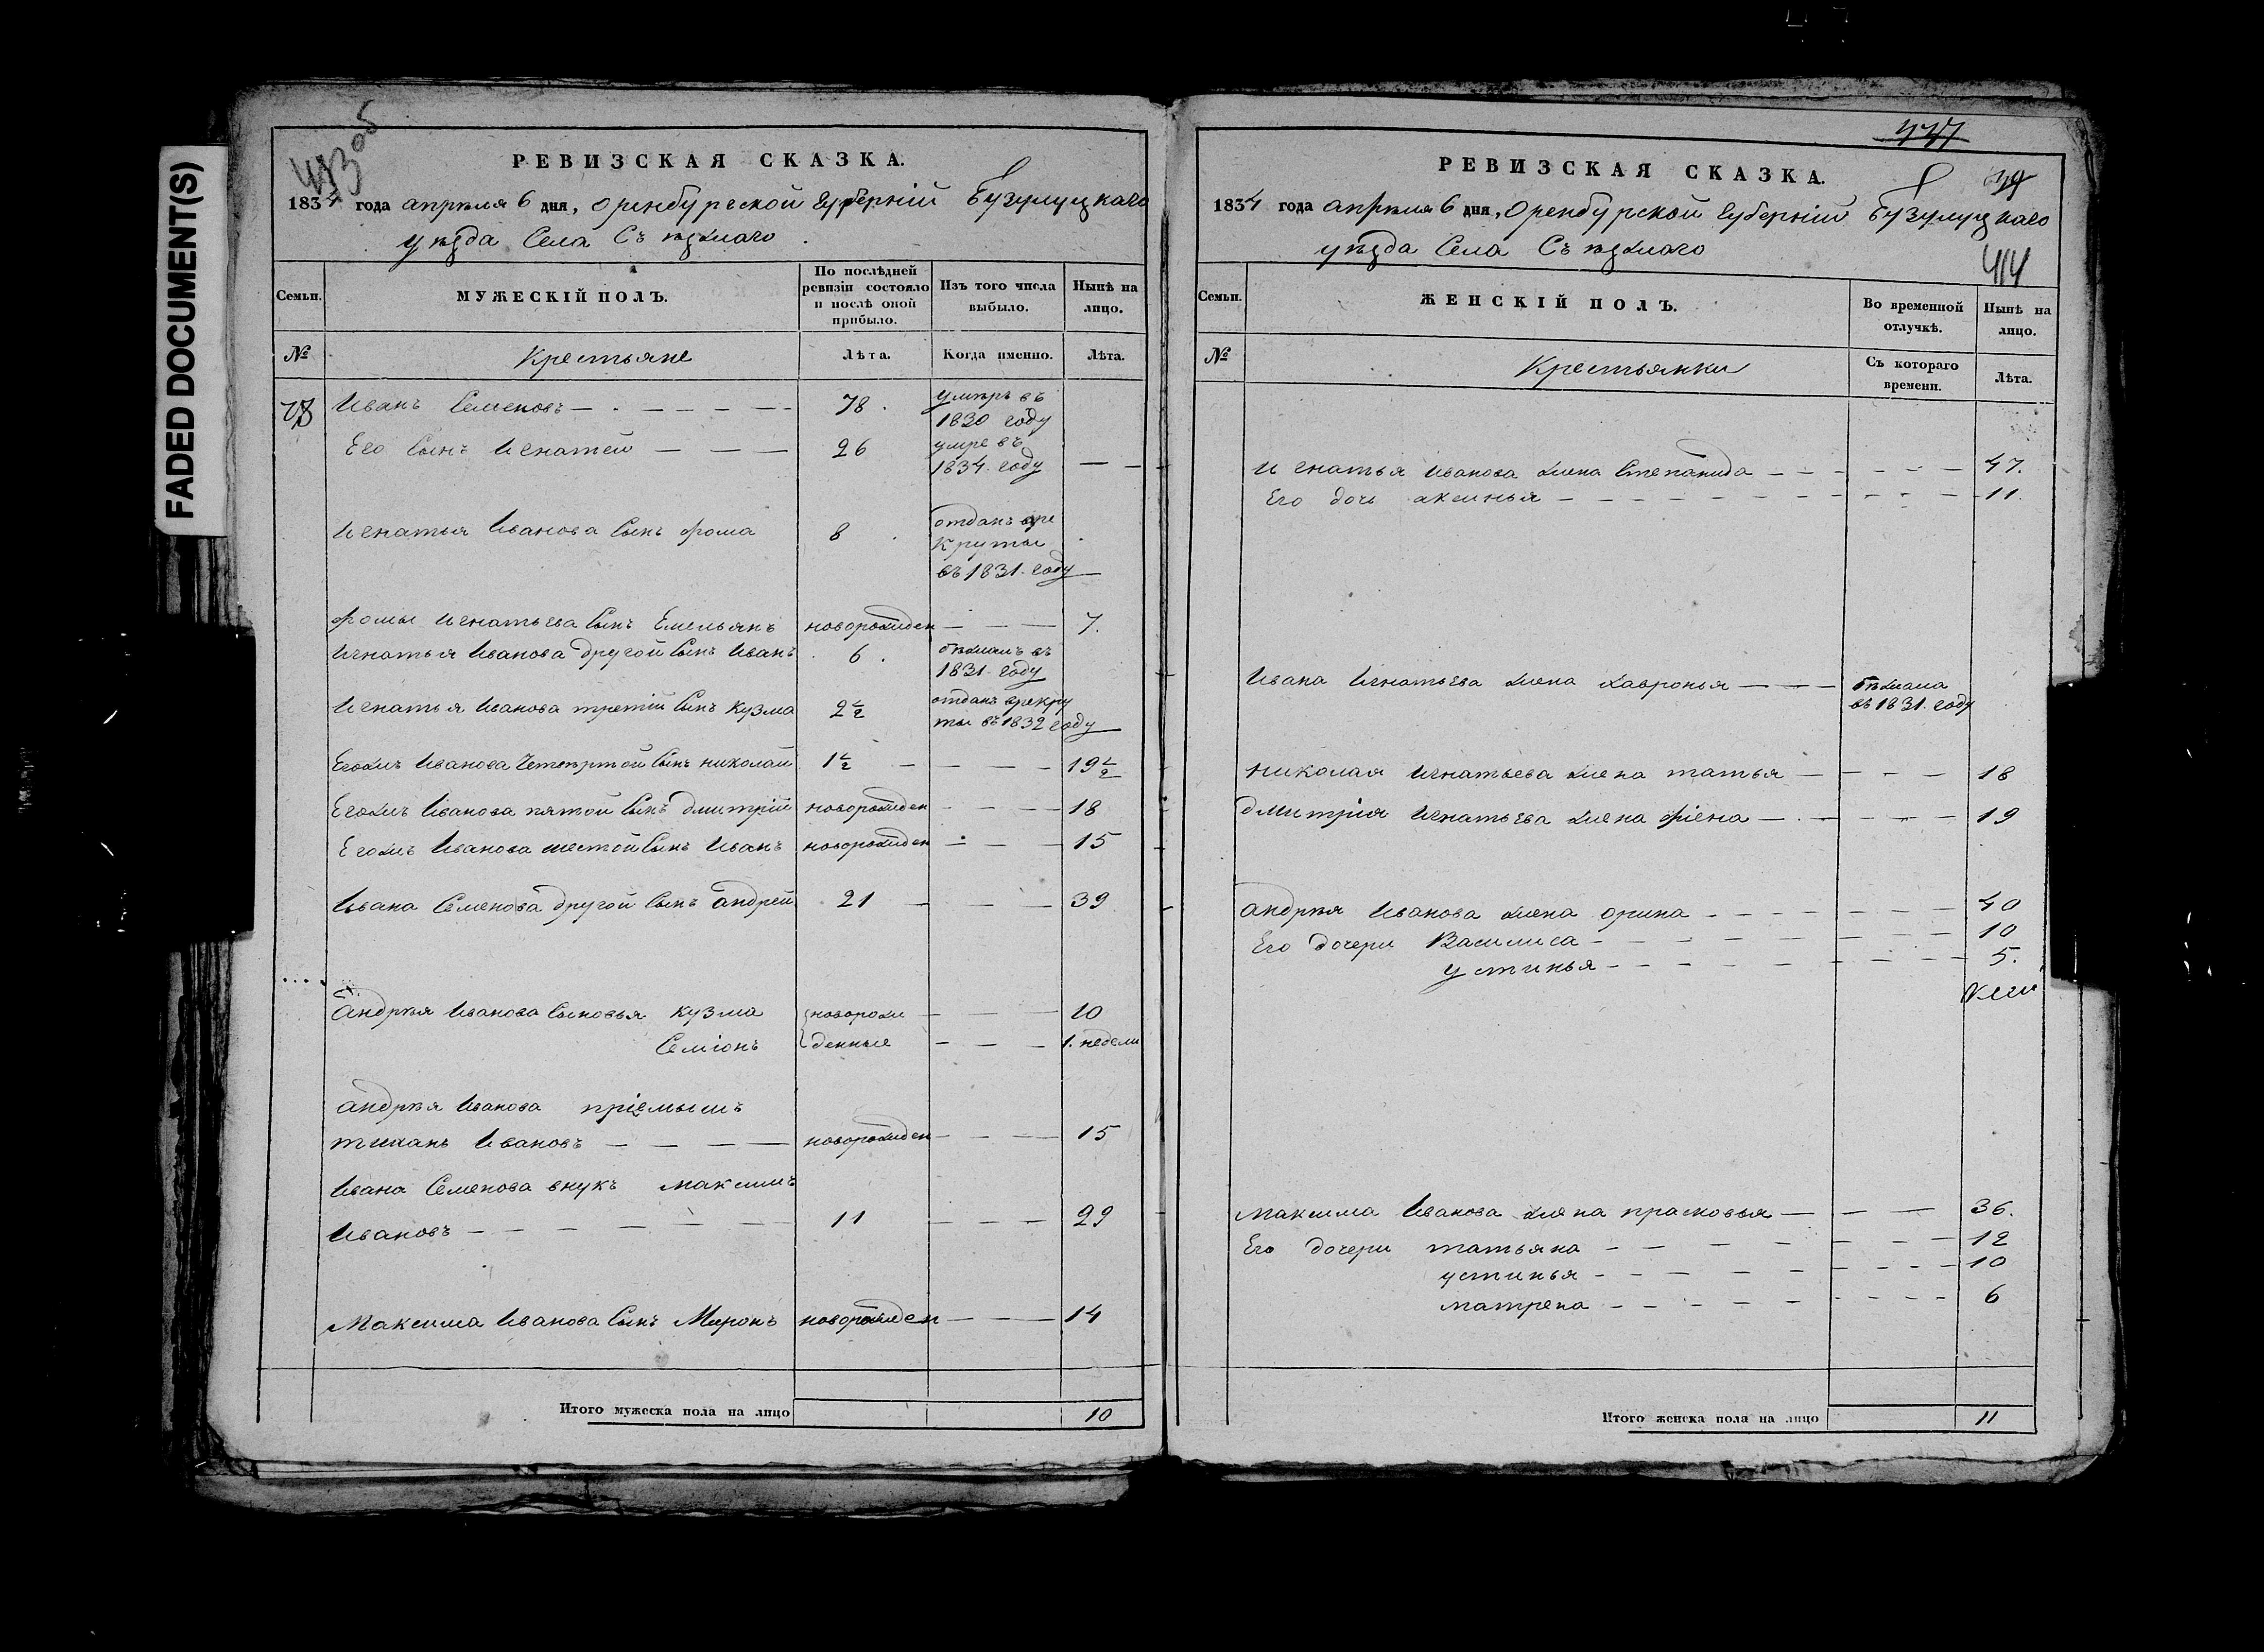 FADED DOCUMENT(S)
413 об
РЕВИЗСКАЯ СКАЗКА.
1834 года апрѣля 6 дня, Оренбургской губерніи Бузулуцкаго
уѣзда Села Съѣзжаго
Семьи.
МУЖЕСКІЙ ПОЛЪ.
По послѣдней ревизіи состояло и послѣ оной прибыло.
Изъ того числа выбыло.
Нынѣ на лицо.
№
Крестьяне
Лѣта.
Когда именно.
Лѣта.
78 Иванъ Семеновъ 78. умѣръ въ 1820 году
Его Сынъ Игнатей 26 умре въ 1834. году
Игнатья Иванова Сынъ фома 8 отданъ вре круты въ 1831. году
фомы Игнатьева Сынъ Емельянъ новорожден 7.
Игнатья Иванова другой Сынъ Иванъ 6. бѣжалъ въ 1831. году
Игнатья Иванова третій Сынъ Кузма 2½ отданъ врекру ты въ 1832 году
Егожъ Иванова Четвѣртой Сынъ николай 1½ 19½
Егожъ Иванова пятой Сынъ дмитрій новорожден 18
Егожъ Иванова шестой Сынъ Иванъ новорожден 15
Ивана Семенова другой Сынъ андрей 21 39
Андрѣя Иванова Сыновья Кузма новорож 10
Семіонъ денные 1. недели
андрѣя Иванова пріемышъ
тиханъ Ивановъ новорожден 15
Ивана Семенова внукъ максимъ
Ивановъ 11 29
Максима Иванова Сынъ Миронъ новорожден 14
Итого мужеска пола на лицо 10
РЕВИЗСКАЯ СКАЗКА.
1834 года апрѣля 6 дня, Оренбурской губерніи Бузулуцкаго
уѣзда Села Съѣзжаго
414
Семьи.
ЖЕНСКІЙ ПОЛЪ.
Во временной отлучкѣ.
Нынѣ на лицо.
№
Крестьянки
Съ котораго времени.
Лѣта.
Игнатья Иванова жена Степанида 47.
Его дочь аксинья 11.
Ивана Игнатьева жена хавронья бѣжала въ 1831. году
николая Игнатьева жена татья 18
дмитрія Игнатьева жена фіена 19
андрѣя Иванова жена орина 40
Его дочери Василиса 10
устинья 5.
максима Иванова жена прасковья 36.
Его дочери татьяна 12
устинья 10
матрена 6
Итого женска пола на лицо 11